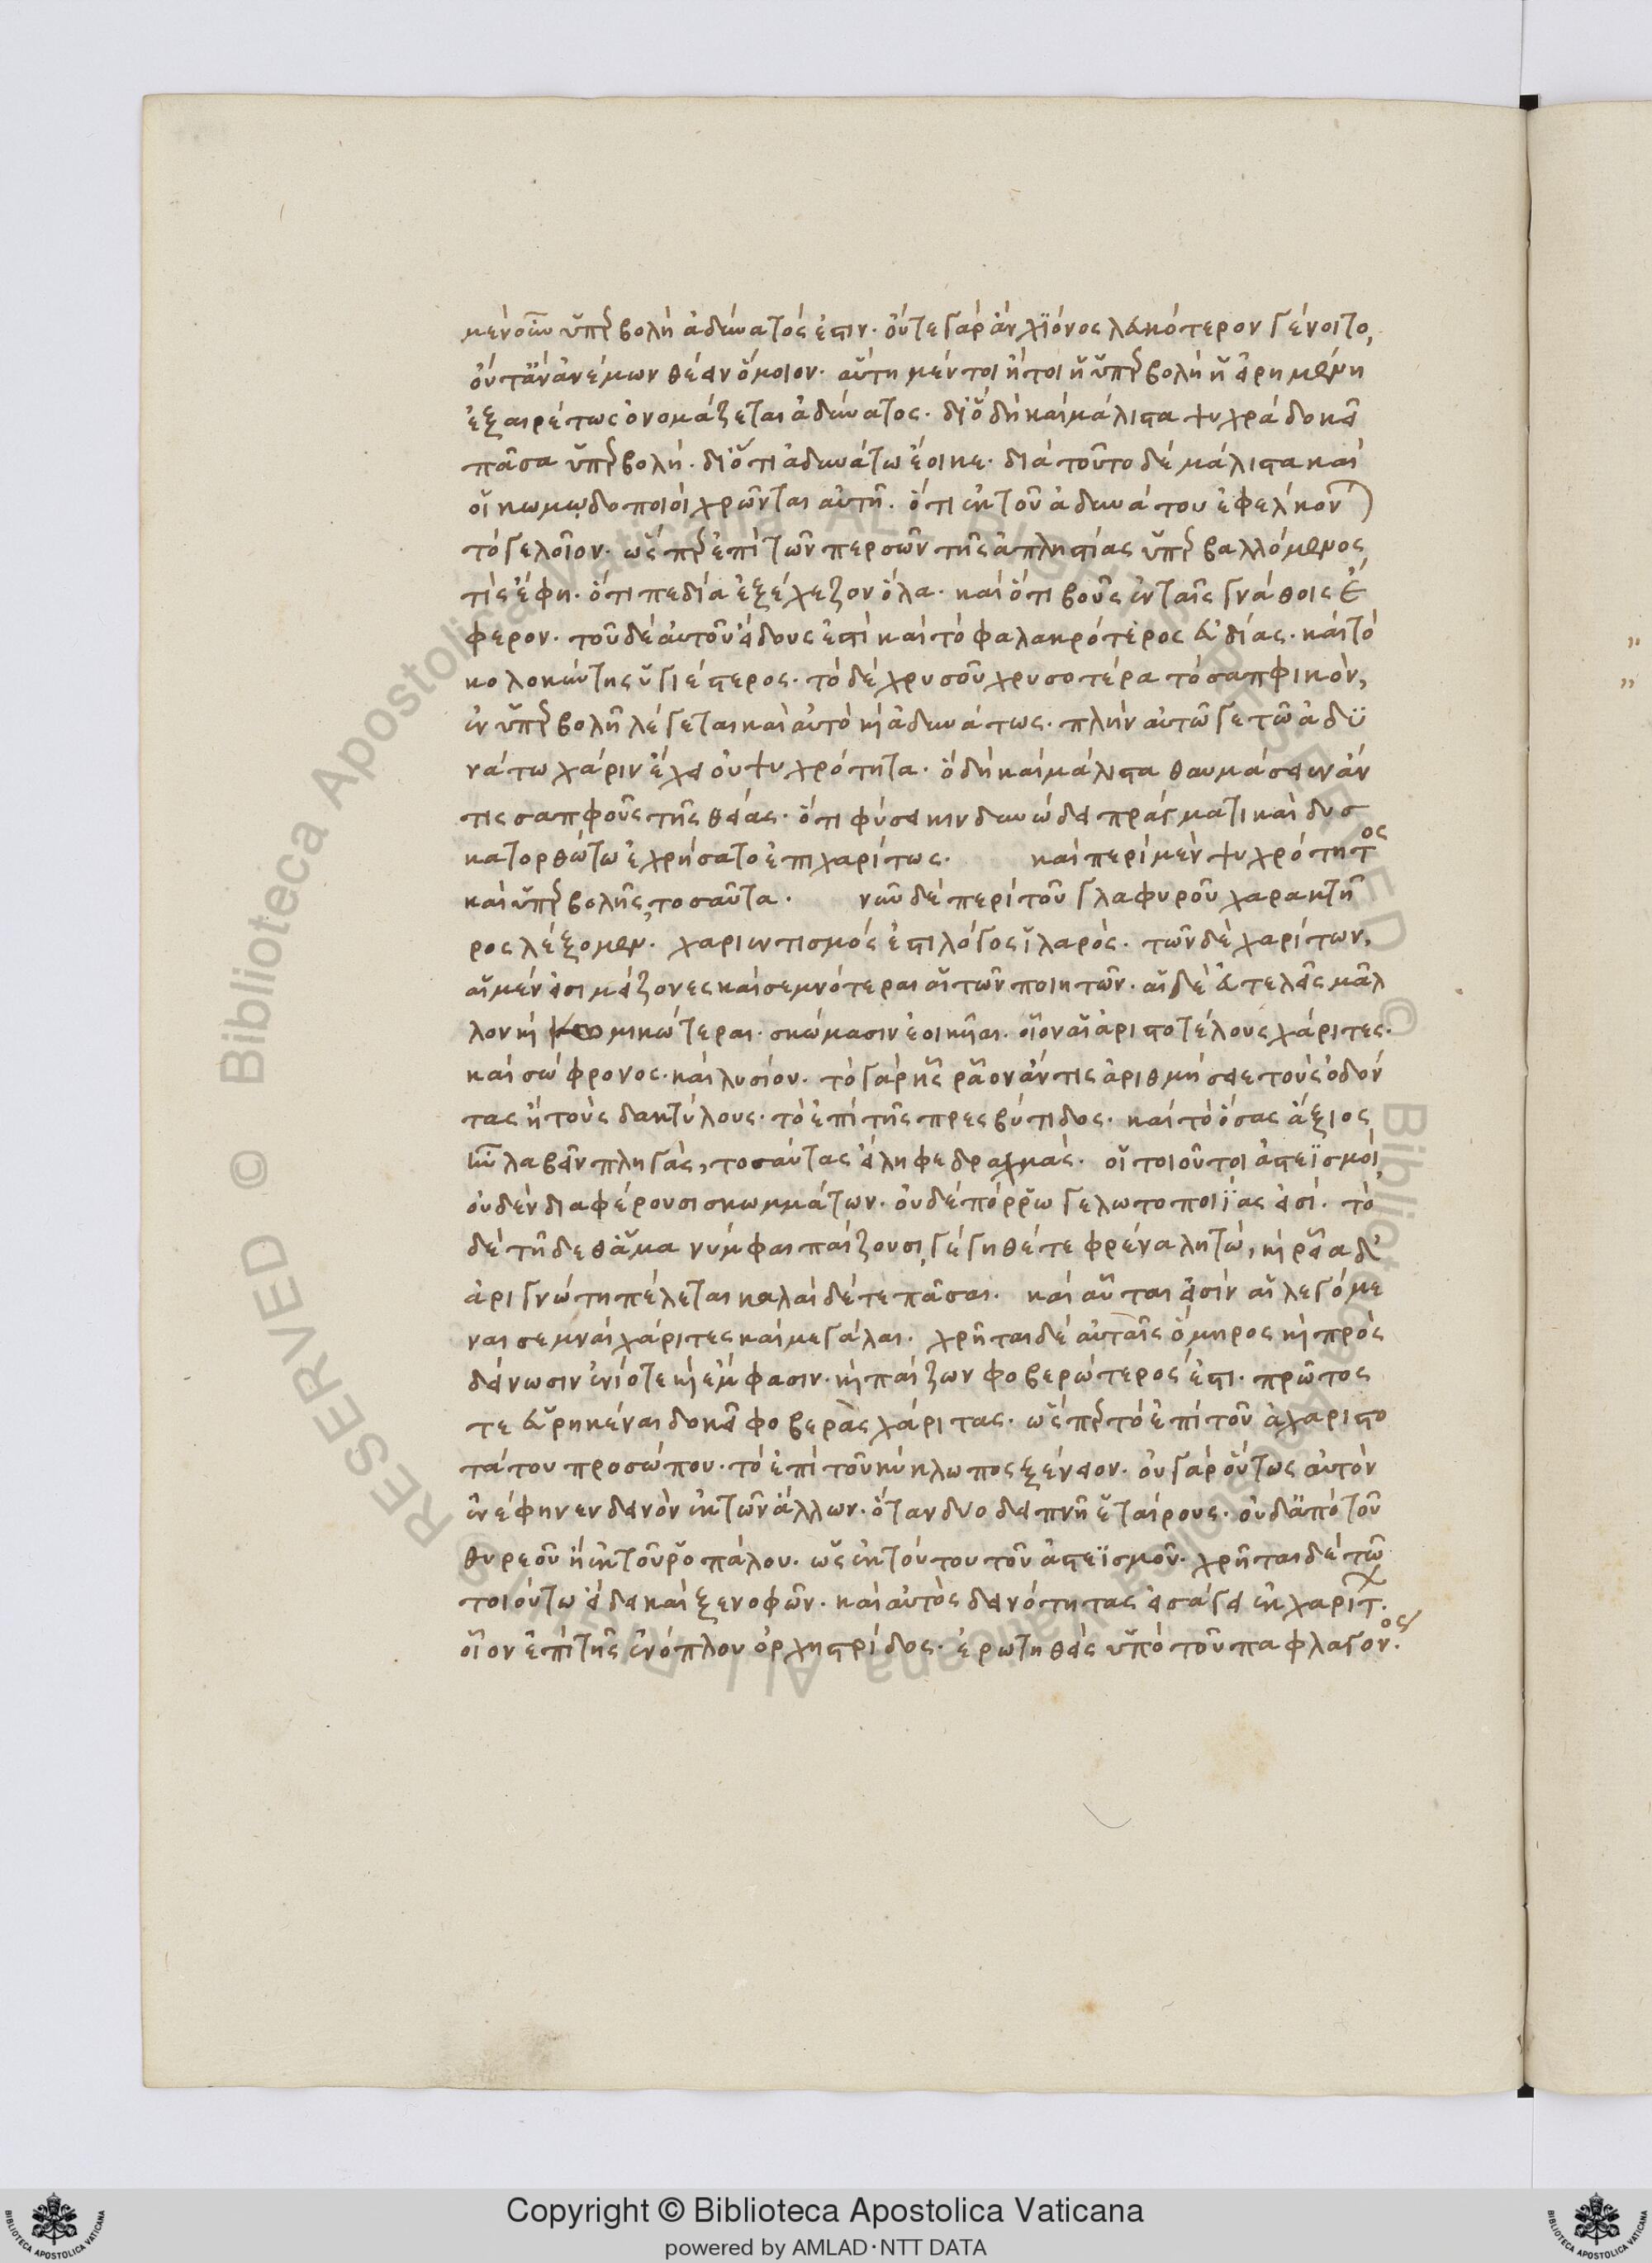 μὲν οὖν ὑπερβολὴ ἀδύνατός ἐστιν. οὔτε γὰρ ἂν χϊόνος λευκότερον γένοιτο,
οὔτ' ἂν ἀνέμων θέειν ὅμοιον. αὕτη μέντοι ἤτοι ἡ ὑπερβολὴ ἡ εἰρημένη
ἐξαιρέτως ὀνομάζεται ἀδύνατος. διὸ δὴ καὶ μάλιστα ψυχρὰ δοκεῖ
πᾶσα ὑπερβολή. διότι ἀδυνάτω ἔοικε. διὰ τοῦτο δὲ μάλιστα καὶ
οἱ κωμωδοποιοὶ χρῶνται αὐτῆ. ὅτι ἐκ τοῦ ἀδυνάτου ἐφέλκονται
τὸ γελοῖον. ὥσπερ ἐπὶ τῶν περσῶν τῆς ἀπληστίας ὑπερβαλλόμενος
τὶς ἔφη. ὅτι πεδία ἐξέχεζον ὅλα. καὶ ὅτι βοῦς ἐν ταῖς γνάθοις ἔ
φερον. τοῦ δὲ αὐτοῦ εἴδους ἐστὶ καὶ τὸ φαλακρότερος εὐδίας. καὶ τὸ
κολοκύντης ὑγιέστερος. τὸ δὲ χρυσοῦ χρυσοτέρα τὸ σαπφικὸν,
ἐν ὑπερβολῆ λέγεται καὶ αὐτὸ καὶ ἀδυνάτως. πλὴν αὐτῶ γε τῶ ἀδυ
νάτω χάριν ἔχει οὐ ψυχρότητα. ὃ δὴ καὶ μάλιστα θαυμάσειεν ἄν
τις σαπφοῦς τῆς θείας. ὅτι φύσει κινδυνώδει πράγματι καὶ δυσ
κατορθώτω ἐχρήσατο ἐπιχαρίτως. καὶ περὶ μὲν ψυχρότητος
καὶ ὑπερβολῆς, τοσαῦτα. νῦν δὲ περὶ τοῦ γλαφυροῦ χαρακτῆ
ρος λέξομεν. χαριεντισμός ἐστι λόγος ἱλαρὸς. τῶν δὲ χαρίτων,
αἱ μέν εἰσι μείζονες καὶ σεμνότεραι αἱ τῶν ποιητῶν. αἱ δὲ εὐτελεῖς μᾶλ
λον καὶ κωμικώτεραι. σκώμασιν ἐοικῆαι. οἷον αἱ ἀριστοτέλους χάριτες.
καὶ σώφρονος. καὶ λυσίου. τὸ γὰρ ἧς ῥᾶον ἄν τις ἀριθμήσειε τοὺς ὀδόν
τας ἢ τοὺς δακτύλους. τὸ ἐπὶ τῆς πρεσβύτιδος. καὶ τὸ ὅσας ἄξιος
ἦν λαβεῖν πληγὰς, τοσαύτας εἴληφε δραχμάς. οἱ τοιοῦτοι ἀστεϊσμοὶ,
οὐδὲν διαφέρουσι σκωμμάτων. οὐδὲ πόρρω γελωτοποιΐας εἰσί. τὸ
δὲ τῆ δὲ θ' ἅμα νύμφαι παίζουσι, γέγηθέ τε φρένα λητώ, καὶ ῥεῖα δ'
ἀριγνώτη πέλεται καλαὶ δέ τε πᾶσαι. καὶ αὗται εἰσὶν αἱ λεγόμε
ναι σεμναὶ χάριτες καὶ μεγάλαι. χρῆται δὲ αὐταῖς ὅμηρος καὶ πρὸς
δείνωσιν ἐνίοτε καὶ ἔμφασιν. καὶ παίζων φοβερώτερός ἐστι. πρῶτος
τε εὑρηκέναι δοκεῖ φοβερὰς χάριτας. ὥσπερ τὸ ἐπὶ τοῦ ἀχαριστο
τάτου προσώπου. τὸ ἐπὶ τοῦ κύκλωπος ξένειον. οὐ γὰρ οὕτως αὐτὸν
ἐνέφηνεν δεινὸν ἐκ τῶν ἄλλων. ὅταν δύο δειπνῆ ἑταίρους. οὐδ' ἀπὸ τοῦ
θυρεοῦ ἢ ἐκ τοῦ ῥοπάλου. ὡς ἐκ τούτου τοῦ ἀστεϊσμοῦ. χρῆται δὲ τῶ
τοιούτω εἴδει καὶ ξενοφῶν. καὶ αὐτὸς δεινότητας εἰσάγει ἐκ χαρίτων.
οἷον ἐπὶ τῆς ἐνόπλου ὀρχηστρίδος. ἐρωτηθεὶς ὑπὸ τοῦ παφλαγόνος.
Copyright © Biblioteca Apostolica Vaticana
powered by AMLAD·NTT DATA